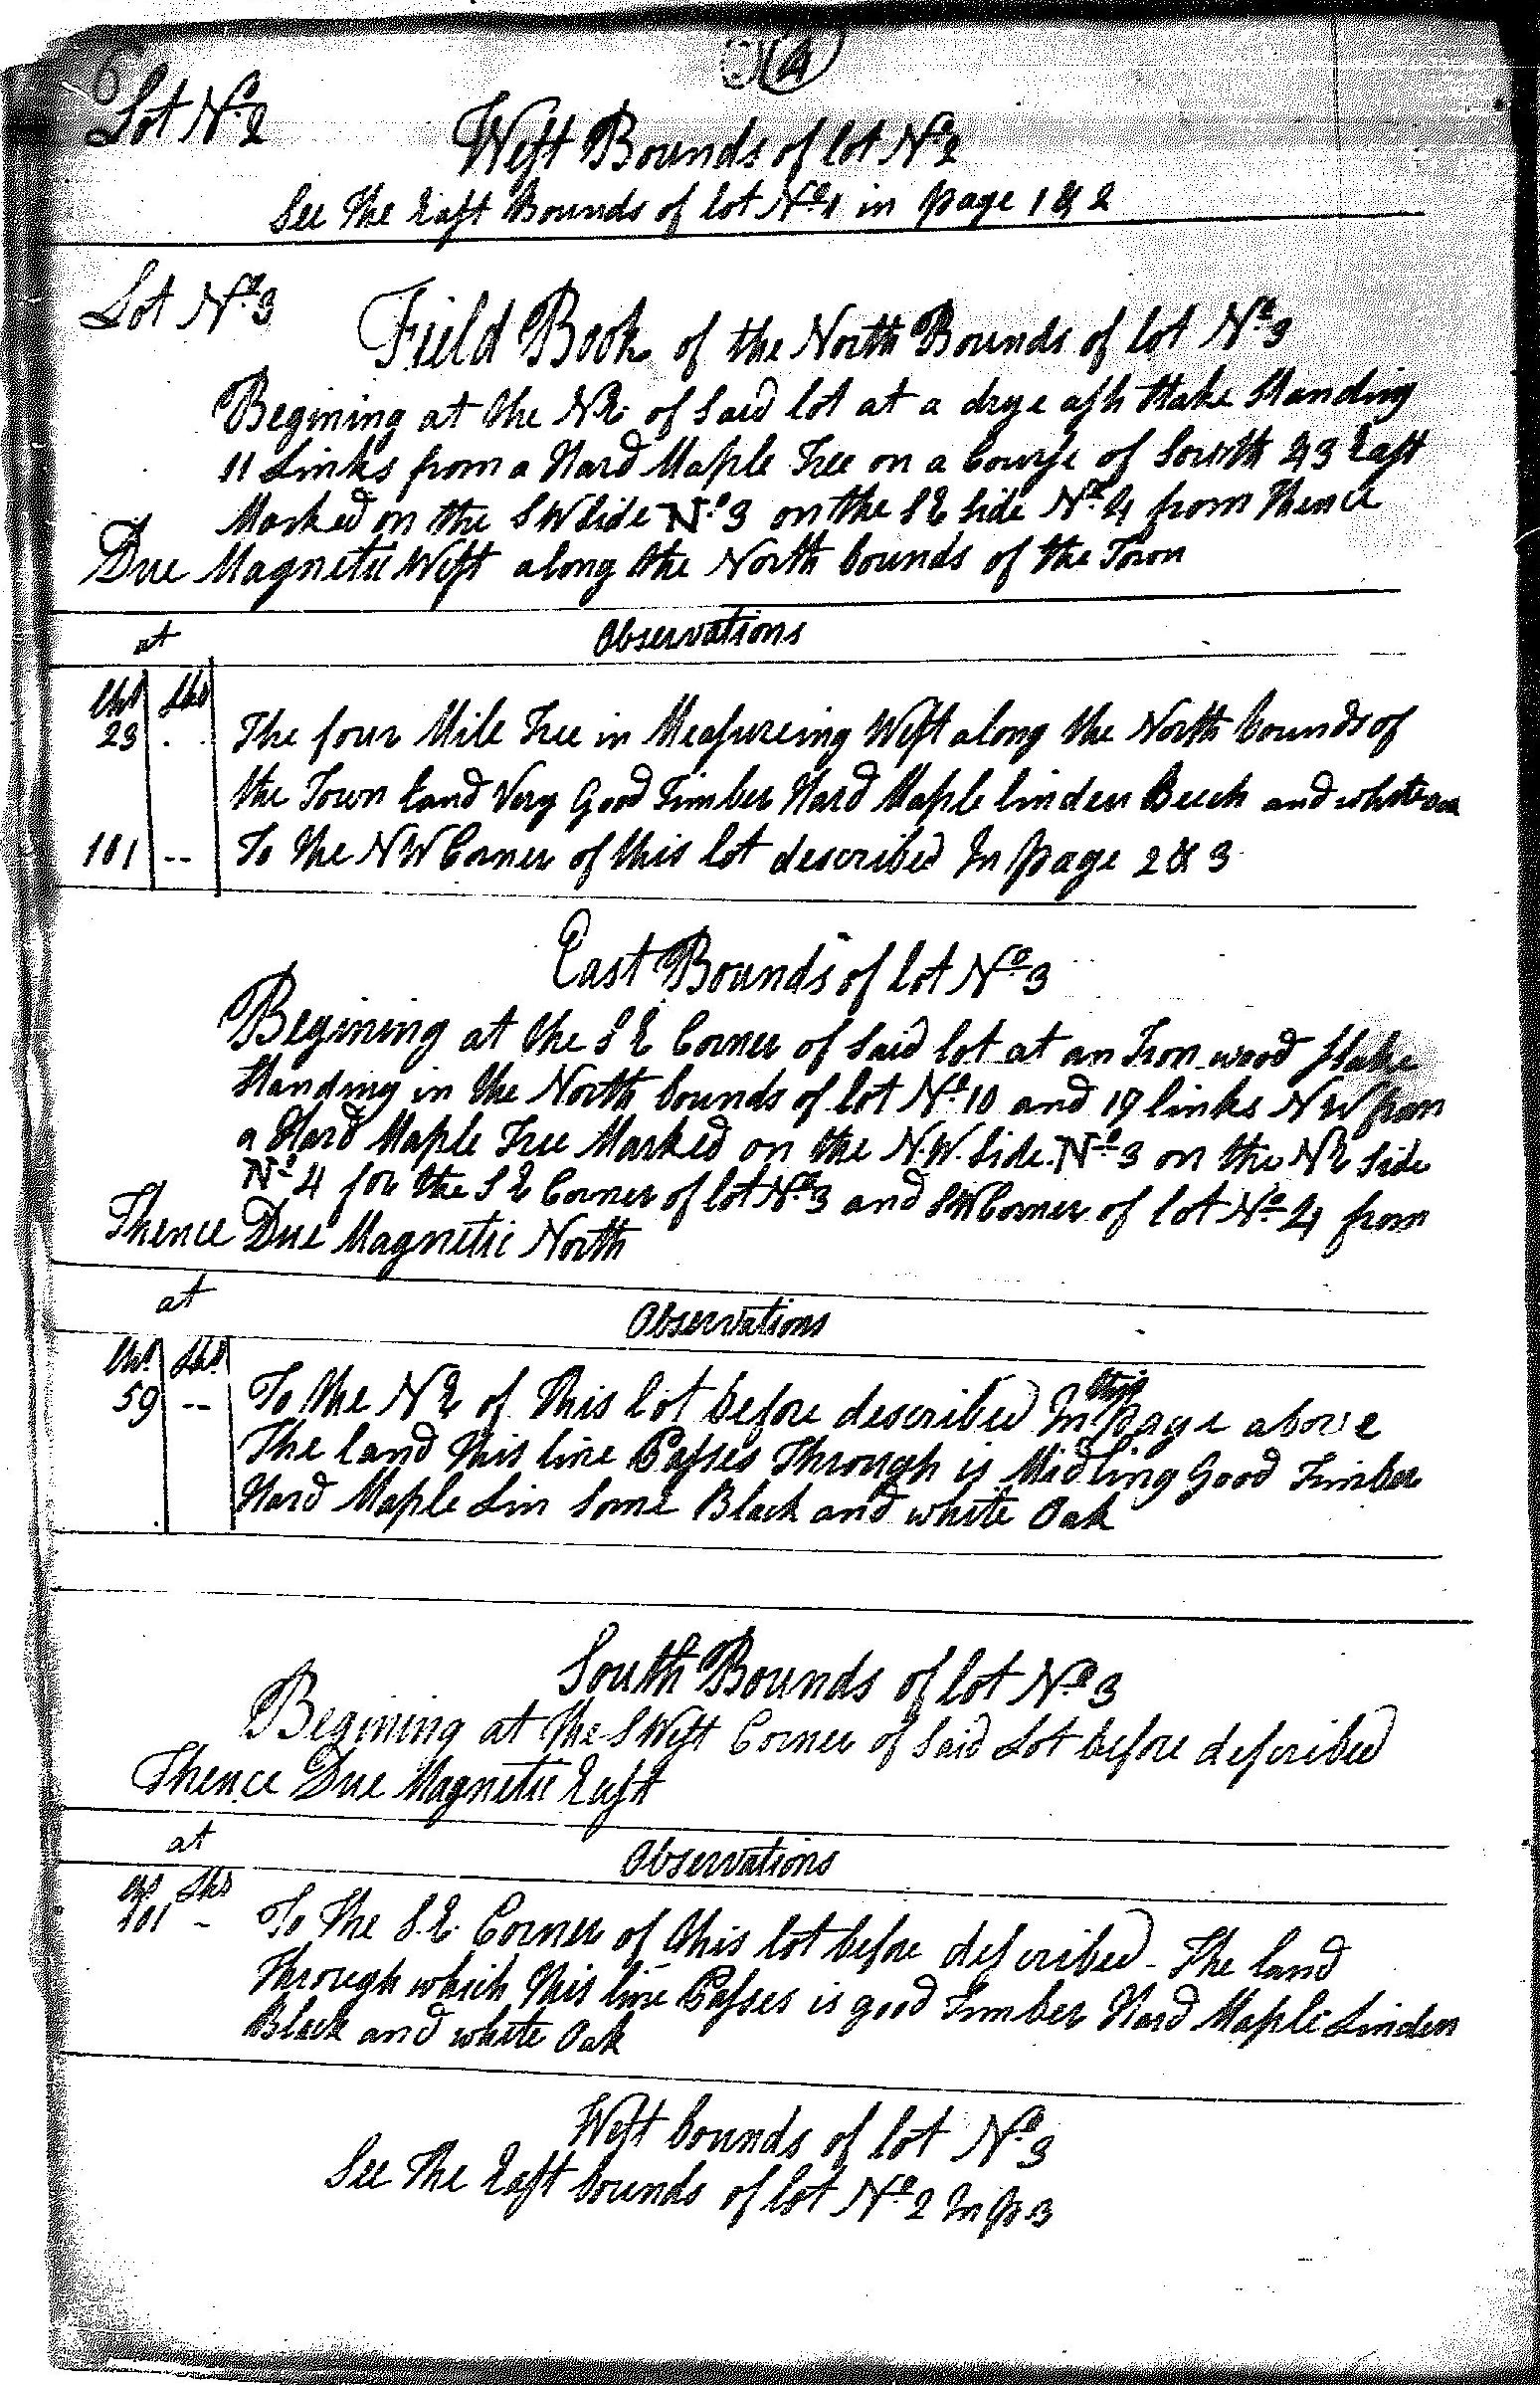 4
6
Lot No 2
West Bounds of lot No 2
See the East Bounds of lot No 1 in page 1 & 2
Lot No 3
Field Book of the North Bounds of lot No 3
Begining at the NE of Said lot at a drye ash Stake Standing
11 Links from a Hard Maple Tree on a Course of South 43 East
Marked on the SW Side No 3 on the SE Side No 4 from Thence
Due Magnetic West along the North bounds of the Town
at Observations
Chs Lks
23 . . The four Mile Tree in Measureing West along the North bounds of
the Town Land Very Good Timber Hard Maple linden Beech and white oak
101 -- To the NW Corner of this lot described In page 2 & 3
East Bounds of lot No 3
Begining at the SE Corner of Said lot at an Iron wood Stake
Standing in the North bounds of lot No 10 and 19 links NW from
a Hard Maple Tree Marked on the N.W. Side No 3 on the NE Side
No 4 for the SE Corner of lot No 3 and SW Corner of lot No 4 from
Thence Due Magnetic North
at Observations
Chs Lks
59 -- To the NE of This lot before described In this page above
The land this line Passes Through is Midling Good Timber
Hard Maple Lin Some Black and white Oak
South Bounds of lot No 3
Begining at the S West Corner of Said Lot before described
Thence Due Magnetic East
at Observations
Chs Lks
101 - To the S.E. Corner of this lot before described - The land
Through which this line Passes is good Timber Hard Maple Linden
Black and white Oak
West bounds of lot No 3
See The East bounds of lot No 2 In p 3